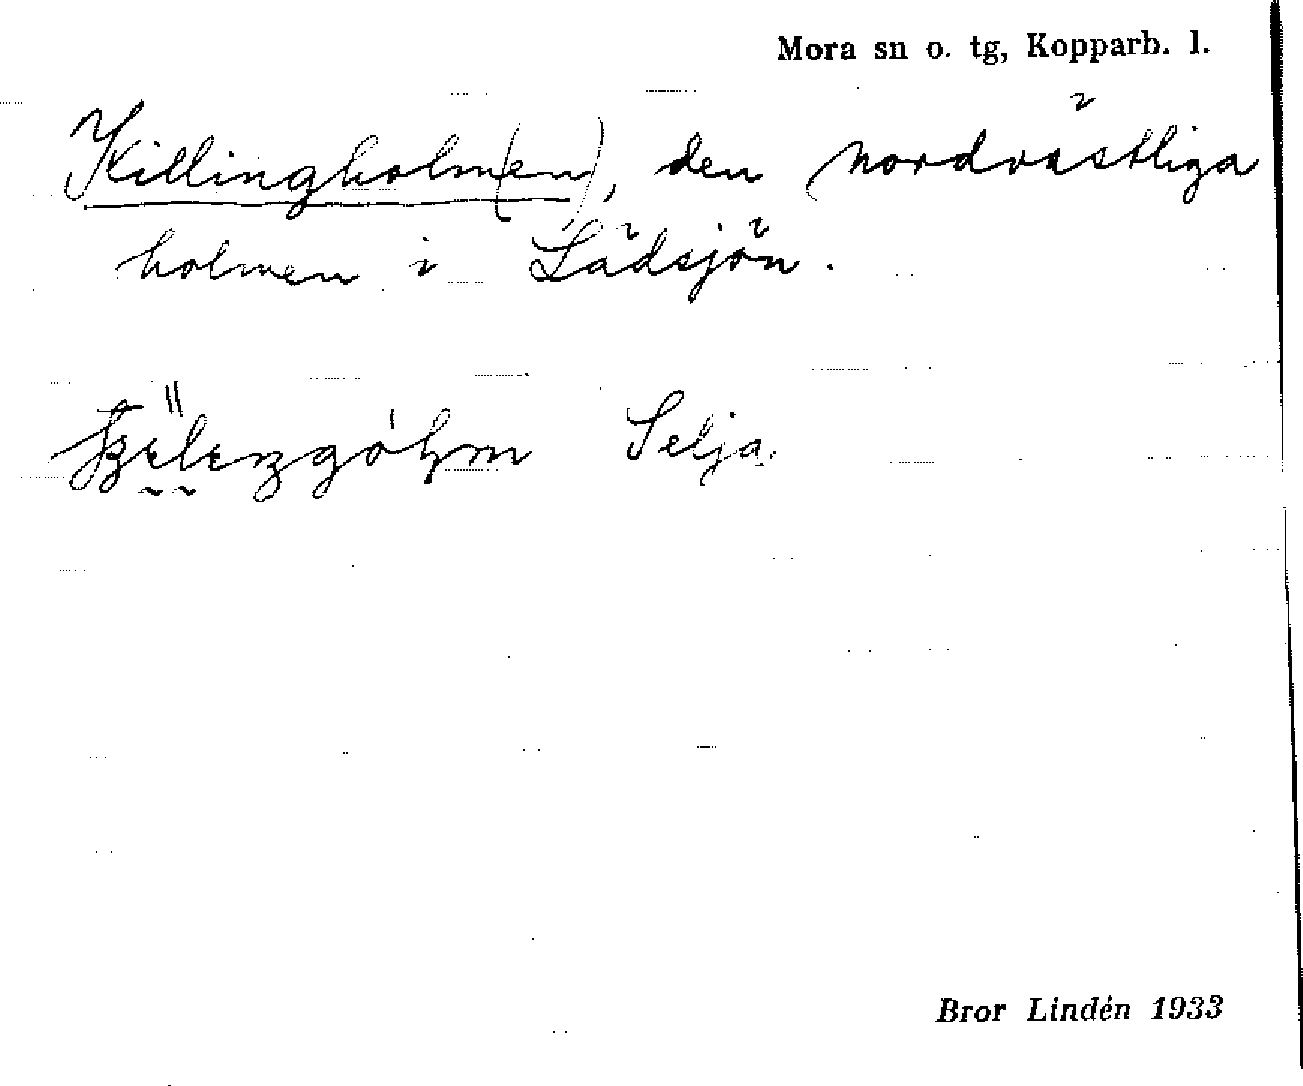 Mora sn o. tg, Kopparb. l.
Killingholm(en), den nordvästliga
holmen i Lädsjön.
Selja.
Bror Lindén 1933